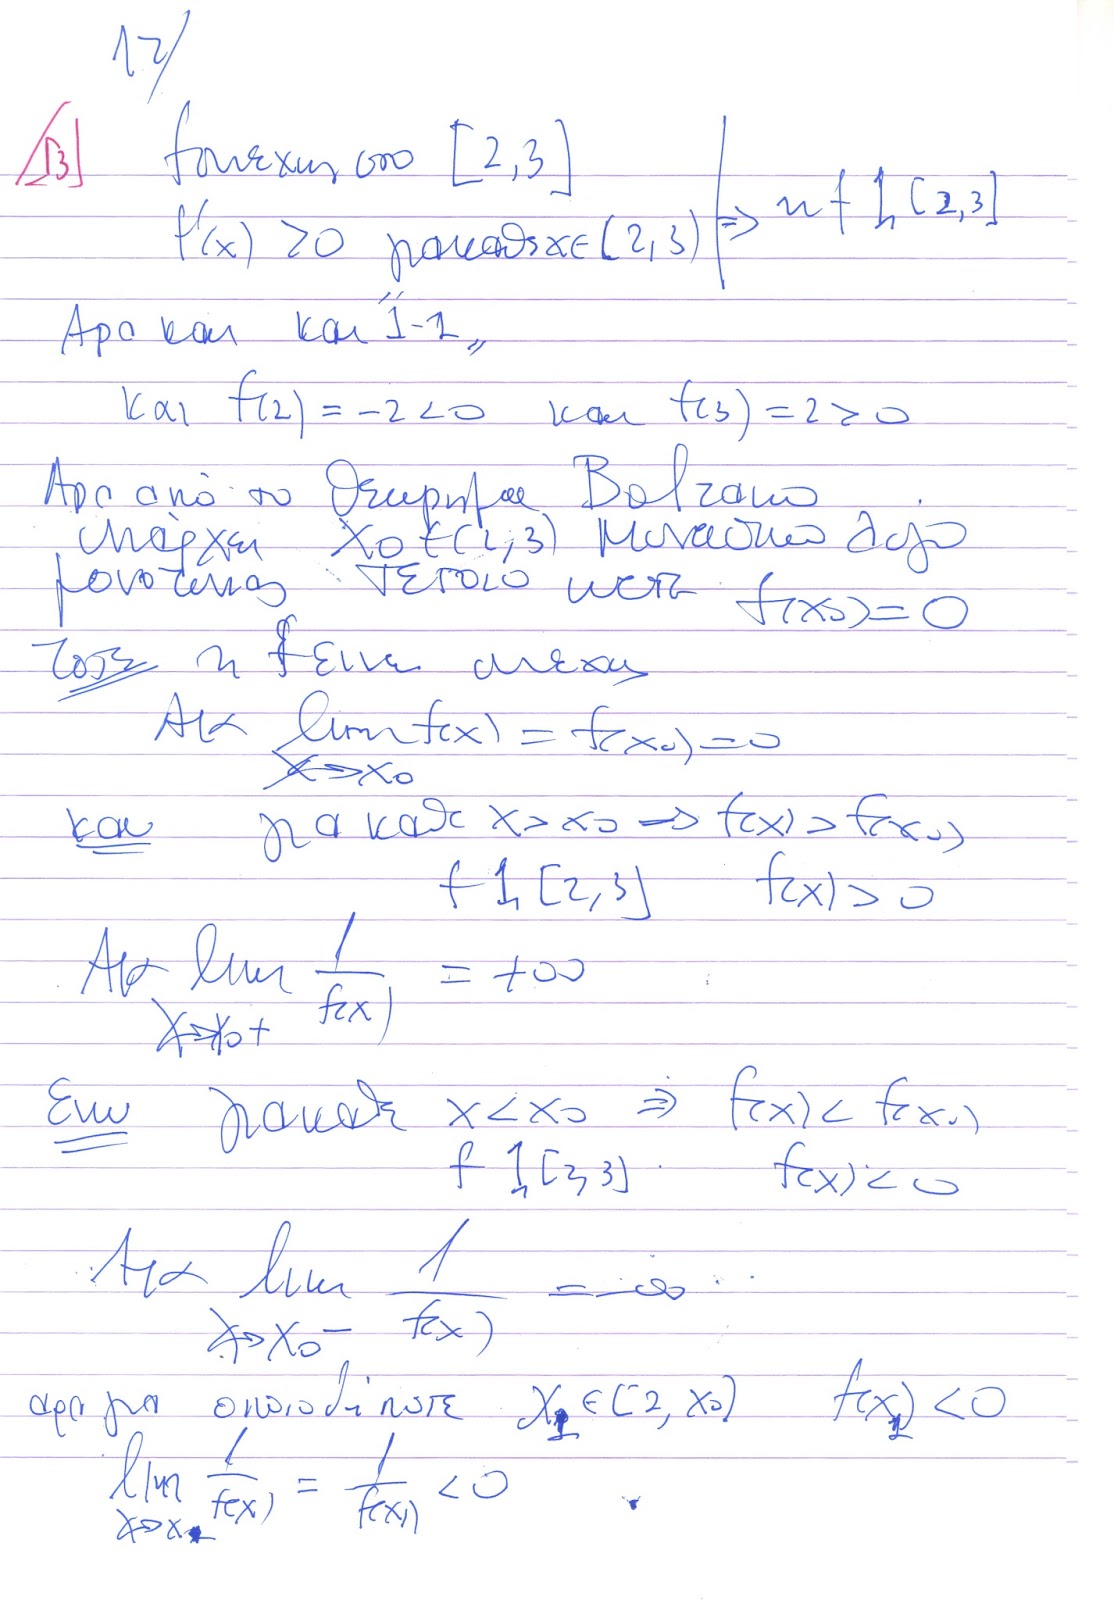 17/
B f συνεχης στο [2,3]
f'(x) > 0 για καθε x∈(2,3) ⇒ η f 1 [2,3]
Αρα και και "1-1"
και f(2) = -2 < 0 και f(3) = 2 > 0
Αρα από το θεωρημα Bolzano
υπάρχει x₀∈(2,3) μοναδικο λογο
μονοτονιας τετοιο ωστε f(x₀) = 0
Τοτε η f ειναι συνεχης
Αρα lim f(x) = f(x₀) = 0
x→x₀
και για καθε x > x₀ ⇒ f(x) > f(x₀)
f 1 [2,3] f(x) > 0
Αρα lim 1/f(x) = +∞
x→x₀+
Ενω για καθε x < x₀ ⇒ f(x) < f(x₀)
f 1 [2,3] f(x) < 0
Αρα lim 1/f(x) = -∞
x→x₀-
αρα για οποιοδήποτε x₁∈[2,x₀) f(x₁) < 0
lim 1/f(x) = 1/f(x₁) < 0
x→x₁